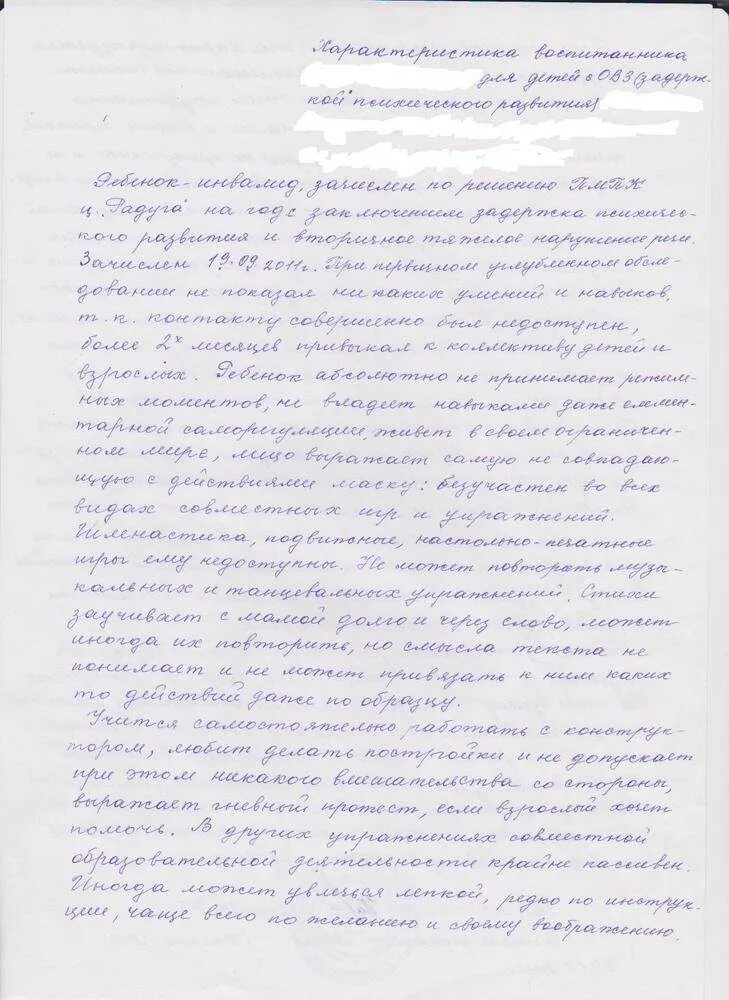 Характеристика воспитанника
для детей с ОВЗ (задерж-
кой психического развития)
Ребенок-инвалид, зачислен по решению ПМПК
ц. "Радуга" на год с заключением задержка психичес-
кого развития и вторичное тяжелое нарушение речи.
Зачислен 19.09.2011г. При первичном углубленном обсле-
довании не показал никаких умений и навыков,
т.к. контакту совершенно был недоступен,
более 2х месяцев привыкал к коллективу детей и
взрослых. Ребенок абсолютно не принимает режим-
ных моментов, не владеет навыками даже елемен-
тарной саморегуляции, живет в своем ограничен-
ном мире, лицо выражает самую не совпадаю-
щую с действиями маску: безучастен во всех
видах совместных игр и упражнений.
Гимнастика, подвижные, настольно-печатные
игры ему недоступны. Не может повторять музы-
кальных и танцевальных упражнений. Стихи
заучивает с мамой долго и через слово, может
иногда их повторить, но смысла текста не
понимает и не может привязать к ним каких
то действий даже по образцу.
Учится самостоятельно работать с конструк-
тором, любит делать постройки и не допускает
при этом никакого вмешательства со стороны,
выражает гневный протест, если взрослый хочет
помочь. В других упражнениях совместной
образовательной деятельности крайне пассивен.
Иногда может увлечься лепкой, редко по инструк-
ции, чаще всего по желанию и своему воображению.